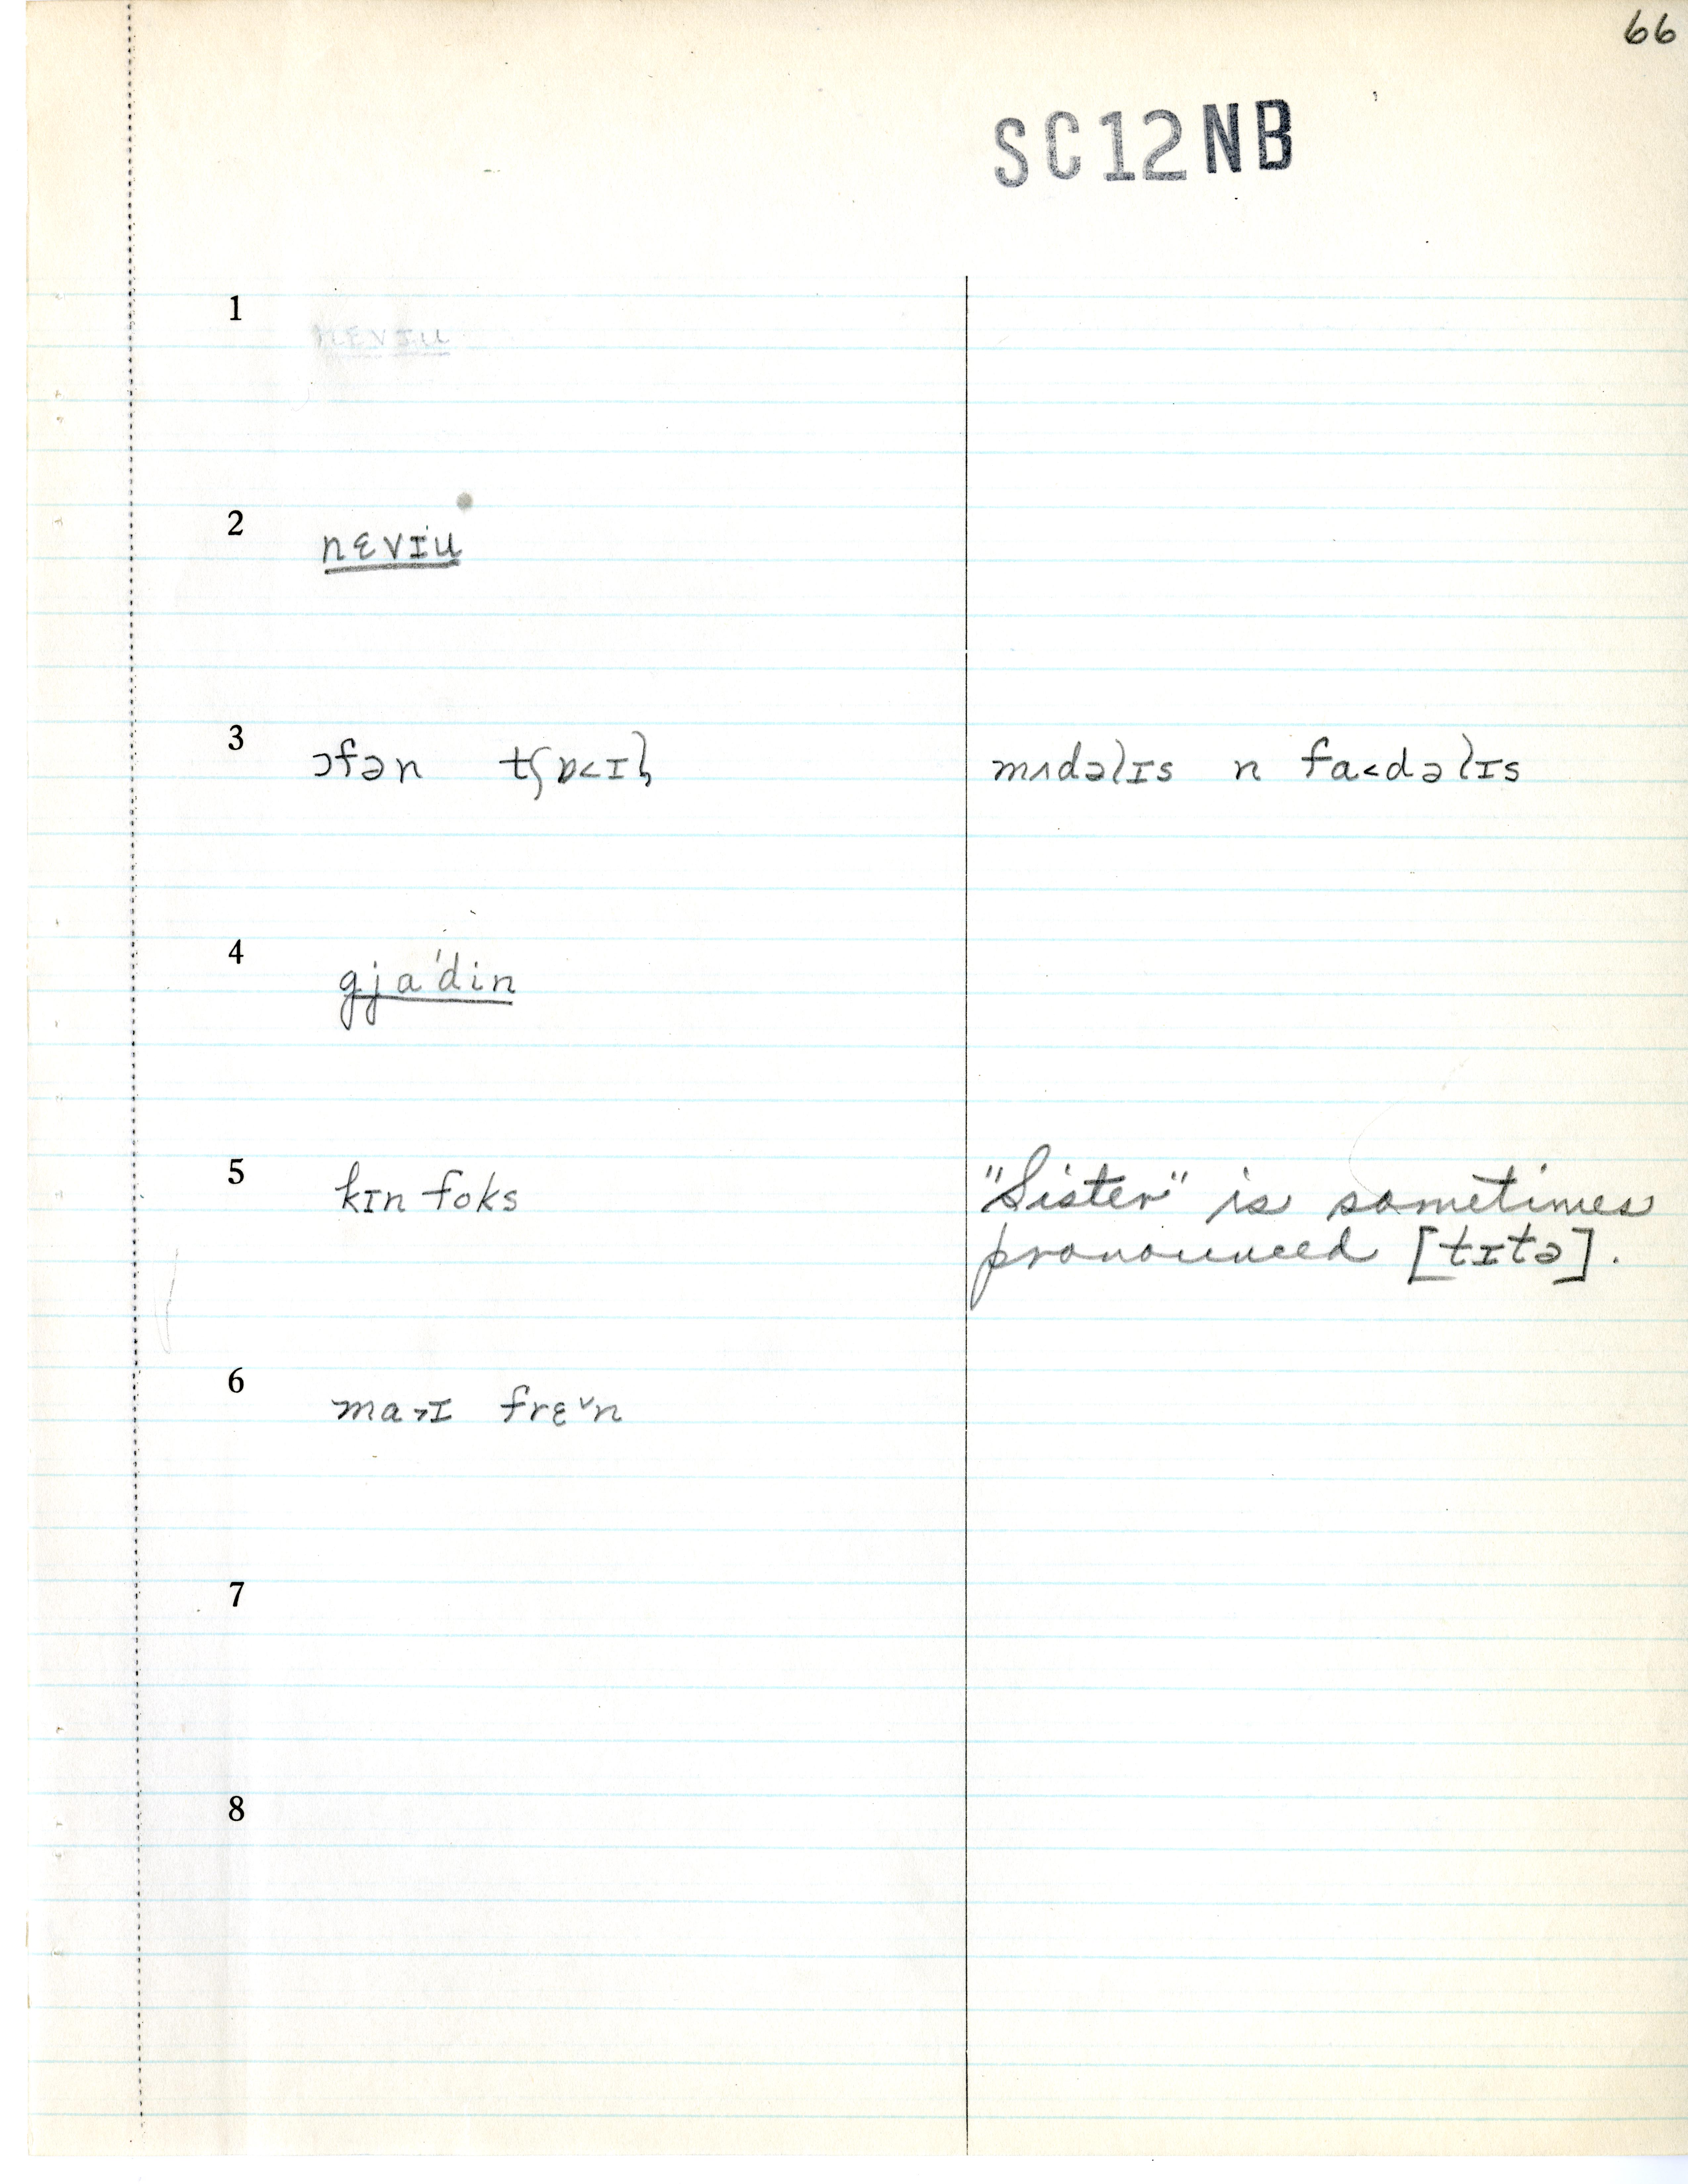 66
SC12NB
1 nɛvɪu
2 nɛvɪu
3 ɔfən tʃɒ˂ɪl̩ mʌdəlɪs n fa˂dəlɪs
4 gja'din
5 kɪn foks "Sister" is sometimes
pronounced [tɪtə].
6 ma˃ɪ frɛˇn
7
8